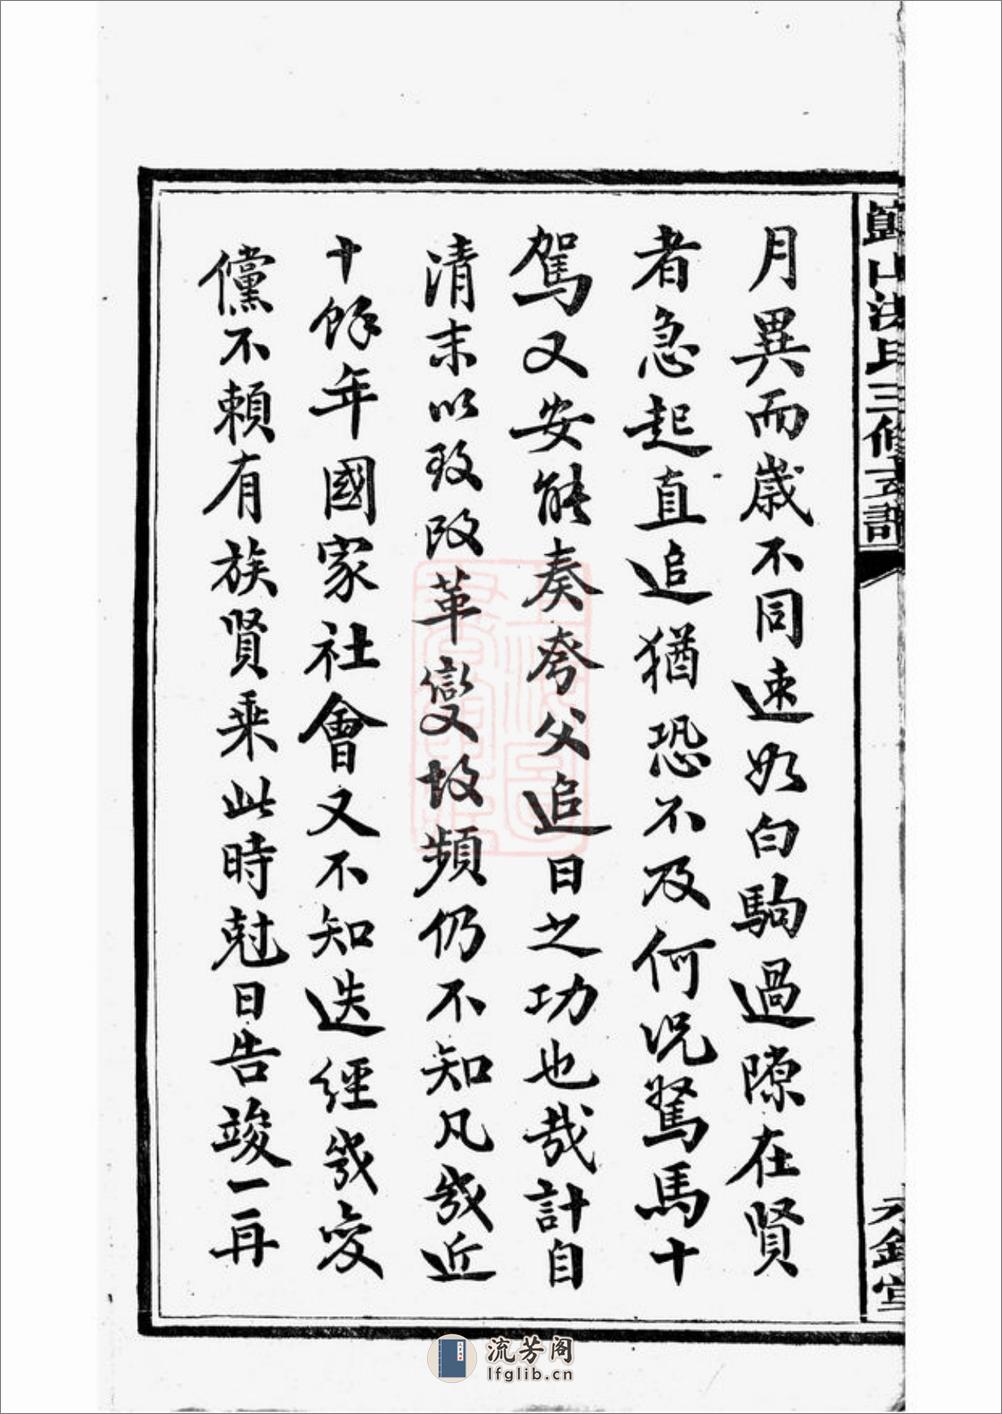 月異而歲不同速如白駒過隙在賢
者急起直追猶恐不及何況駑馬十
駕又安能奏夸父追日之功也哉計自
清末以政改革變故頻仍不知凡幾近
十餘年國家社會又不知迭經幾变
儻不賴有族賢乘此時尅日告竣一再
流芳阁
lfglib.cn